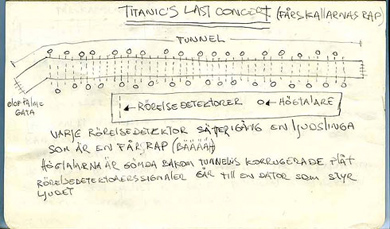 TITANIC'S LAST CONCERT (FÅRSKALLARNAS RAP)
TUNNEL
OLOF PALME
GATA
← RÖRELSEDETEKTORER ← HÖGTALARE
VARJE RÖRELSEDETEKTOR SÄTTER IGÅNG EN LJUDSLINGA
SOM ÄR EN FÅR, RAP (BÄÄÄÄ)
HÖGTALARNA ÄR GÖMDA BAKOM TUNNELNS KORRUGERADE PLÅT
RÖRELSEDETEKTORERSSIGNALER GÅR TILL EN DATOR SOM STYR
LJUDET